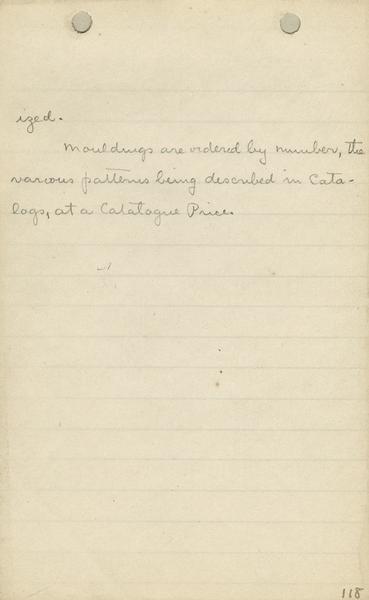 ized.
Mouldings are ordered by number, the
various patterns being described in Cata-
logs, at a Catalogue Price.
118